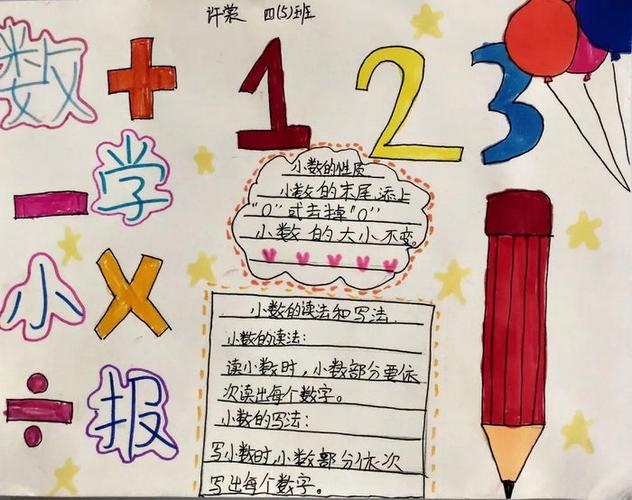 四(5)班
数
+
1 2 3
学
-
小数的性质
小数的末尾添上
“0”或去掉“0”
小数的大小不变。
小
×
小数的读法和写法
小数的读法：
读小数时，小数部分要依
次读出每个数字。
小数的写法：
写小数时，小数部分依次
写出每个数字。
÷
报